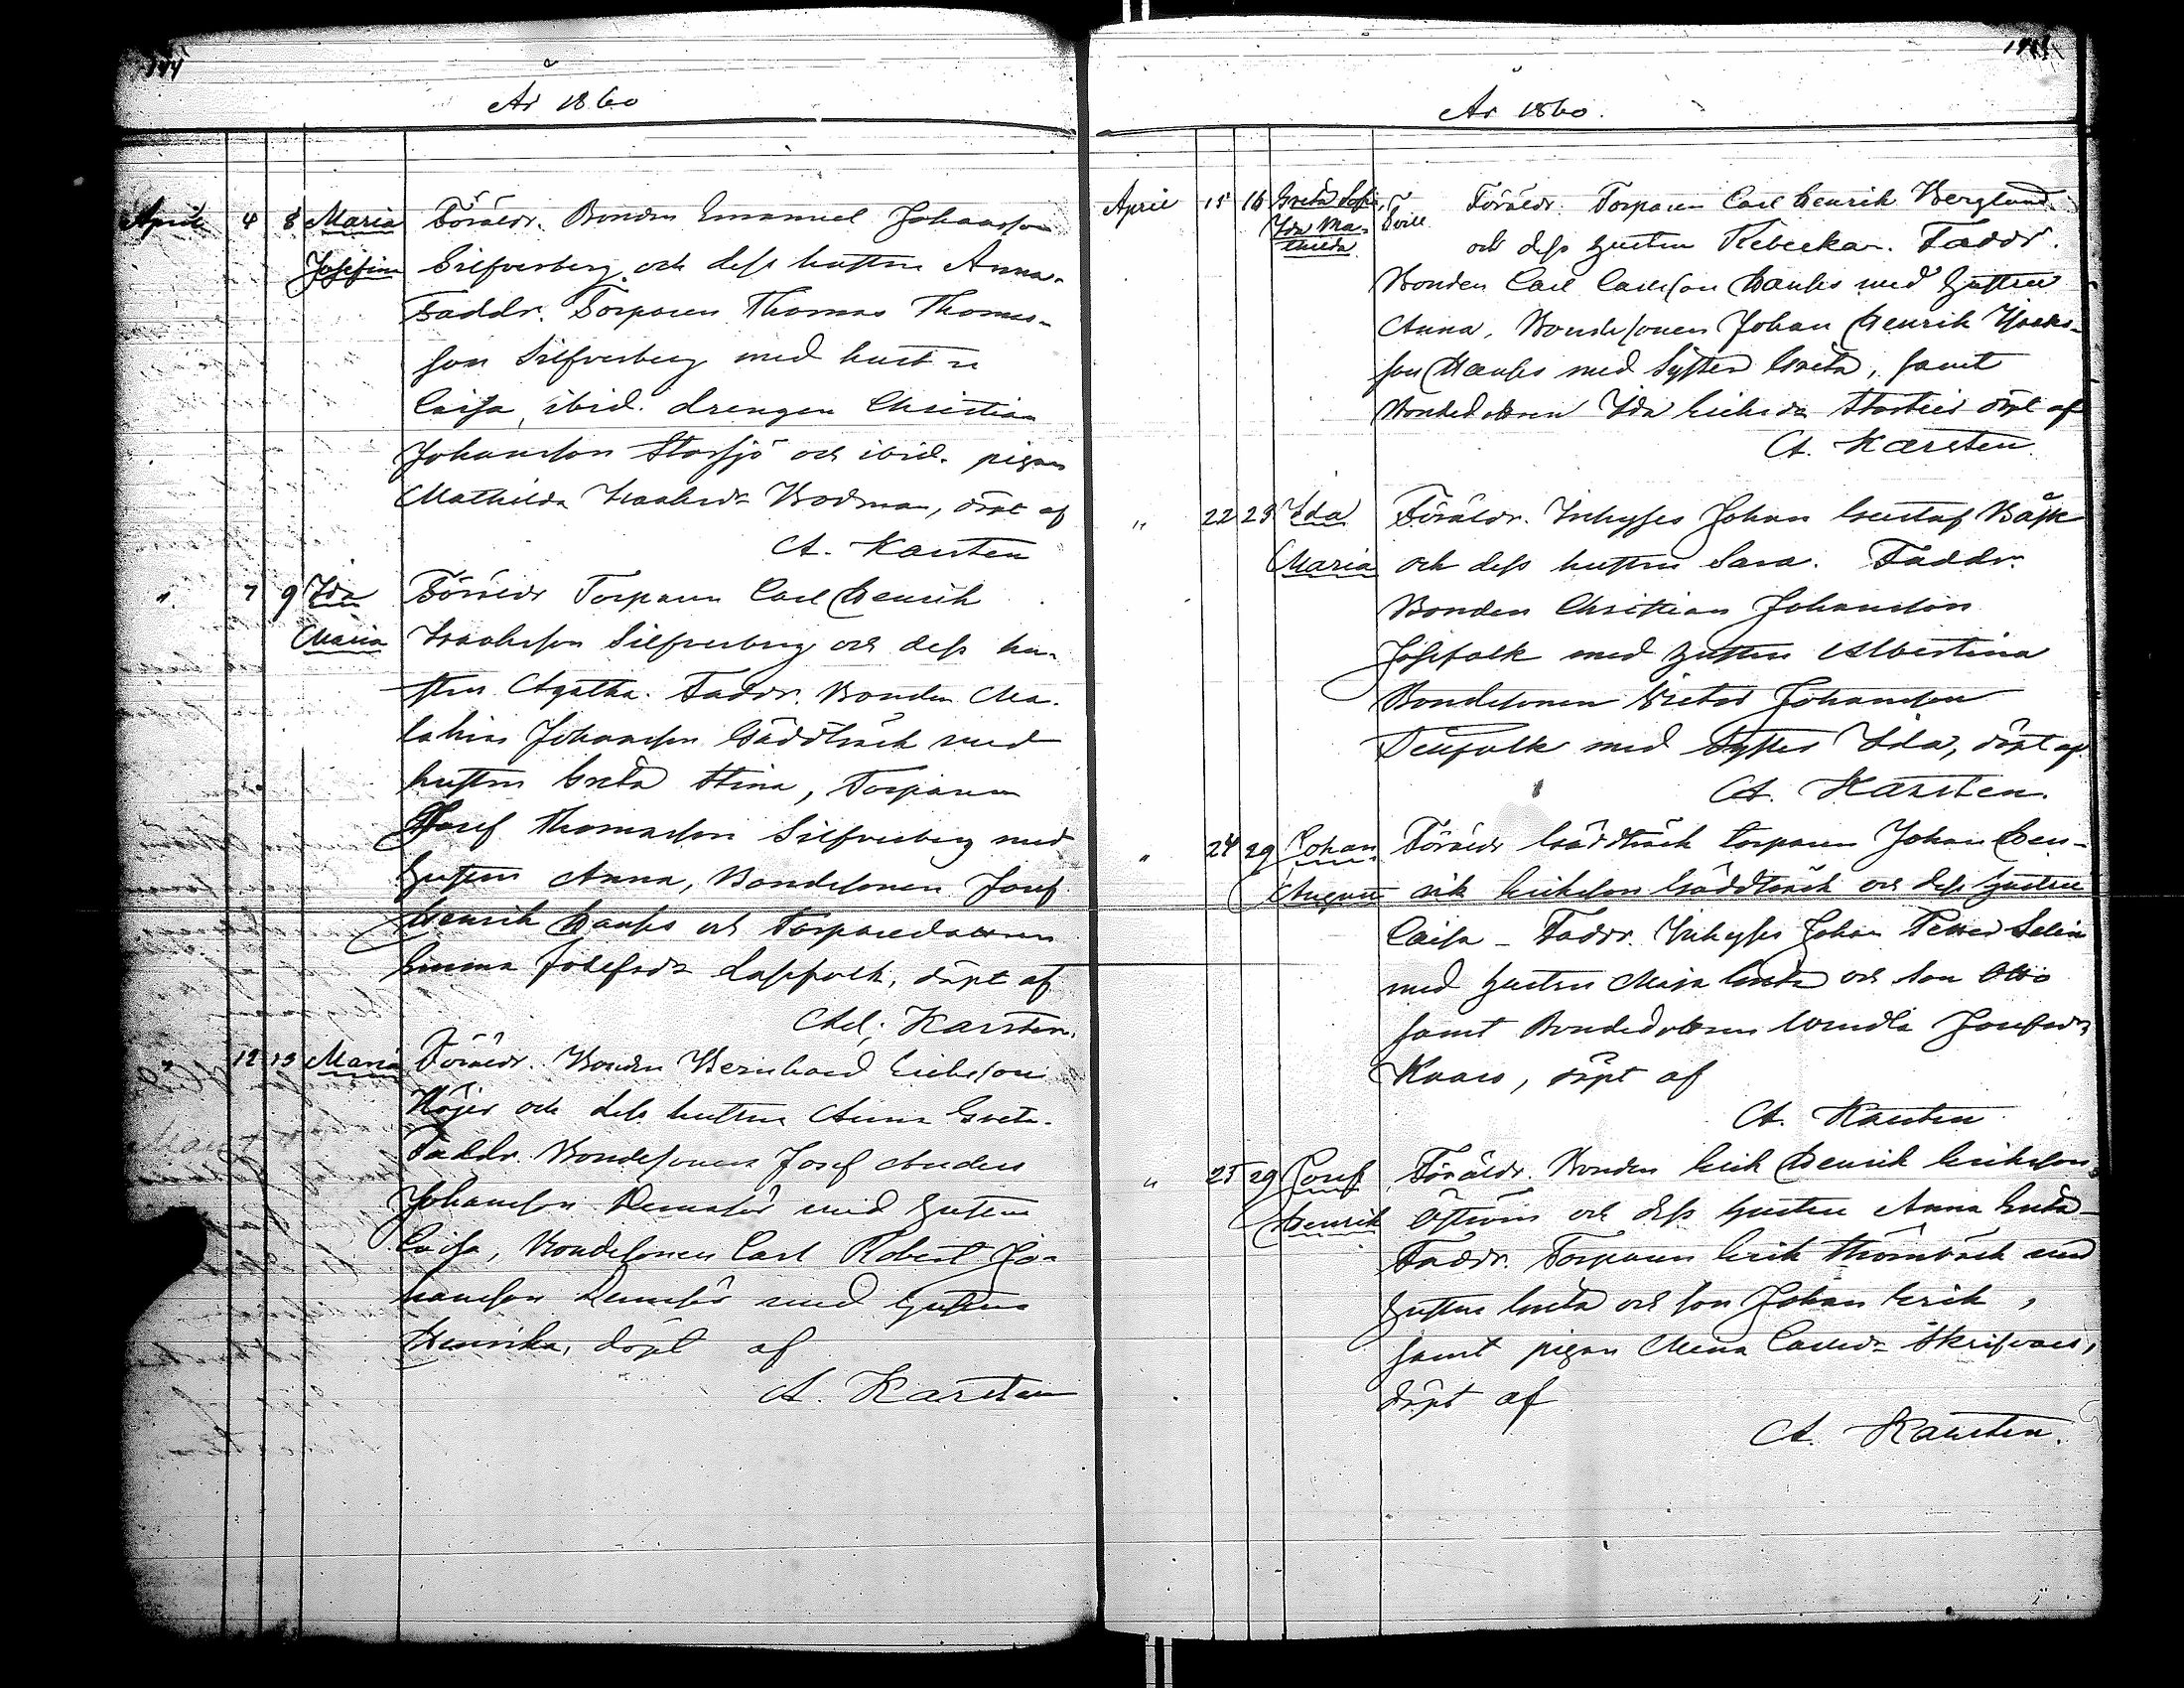 144
År 1860
April 4 8 Maria Föräldr. Bonden Emanuel Johansson
Josefina Silfverberg och dess hustru Anna.
Faddr. Torparen Thomas Thomas-
son Silfverberg med hustru
Caisa, ibid. drengen Christian
Johansson Storsjö och ibid. pigan
Mathilda Isaksdr Bodman, döpt af
A. Karsten
" 7 9 Ida Föräldr Torparen Carl Henrik
Maria Isaksson Silfverberg och dess hu-
stru Agatha. Faddr. Bonden Ma-
Johansson Gäddträsk med
hustru Greta Stina, Torparen
Josef Thomasson Silfverberg med
hustru Anna, Bondesonen Josef
Henrik och Torparedottren
Emma Josefsdr Lappfolk, döpt af
Ad. Karsten.
" 12 13 Maria Föräldr. Bonden Bernhard Eriksson
Höjer och dess hustru Anna Greta.
Faddr. Bondesonen Josef Anders
Johansson med hustru
Caisa, Bondesonen Carl Robert Jo-
hansson med hustru
Henrika, döpt af
A. Karsten
År 1860.
April 15 16 Greta Sofia, Föräldr. Torparen Carl Henrik Berglund
Ida Ma- och dess hustru Rebecka. Faddr.
thilda
Bonden Carl Carlsson med hustru
Anna, Bondesonen Johan Henrik Isaks-
son med Syster Greta, samt
Bondedottren Ida Eriksdr döpt af
A. Karsten.
" 22 23 Ida Föräldr. Inhyses Johan Gustaf Båsk
Maria och dess hustru Sara. Faddr.
Bonden Christian Johansson
med hustru Albertina
Bondesonen Victor Johansson
med Syster Ida, döpt af
A. Karsten.
" 24 29 Johan Föräldr Gäddträsk torparen Johan Hen-
August rik Eriksson Gäddträsk och dess hustru
Caisa – Faddr. Inhyses Johan Petter Selin
med hustru Maja Greta och Son Otto
samt Bondedottren Wendla Josefsdr
döpt af
A. Karsten
" 25 29 Josef Föräldr. Bonden Erik Henrik Eriksson
Henrik Öström och dess hustru Anna Greta
Faddr. Torparen Erik Thörnbäck med
hustru Greta och son Johan Erik,
samt pigan Carlsdr Skrifvars,
döpt af
A. Karsten.